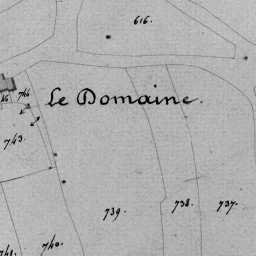 616.
Le Domaine.
746
743.
739.
738.
737.
740.